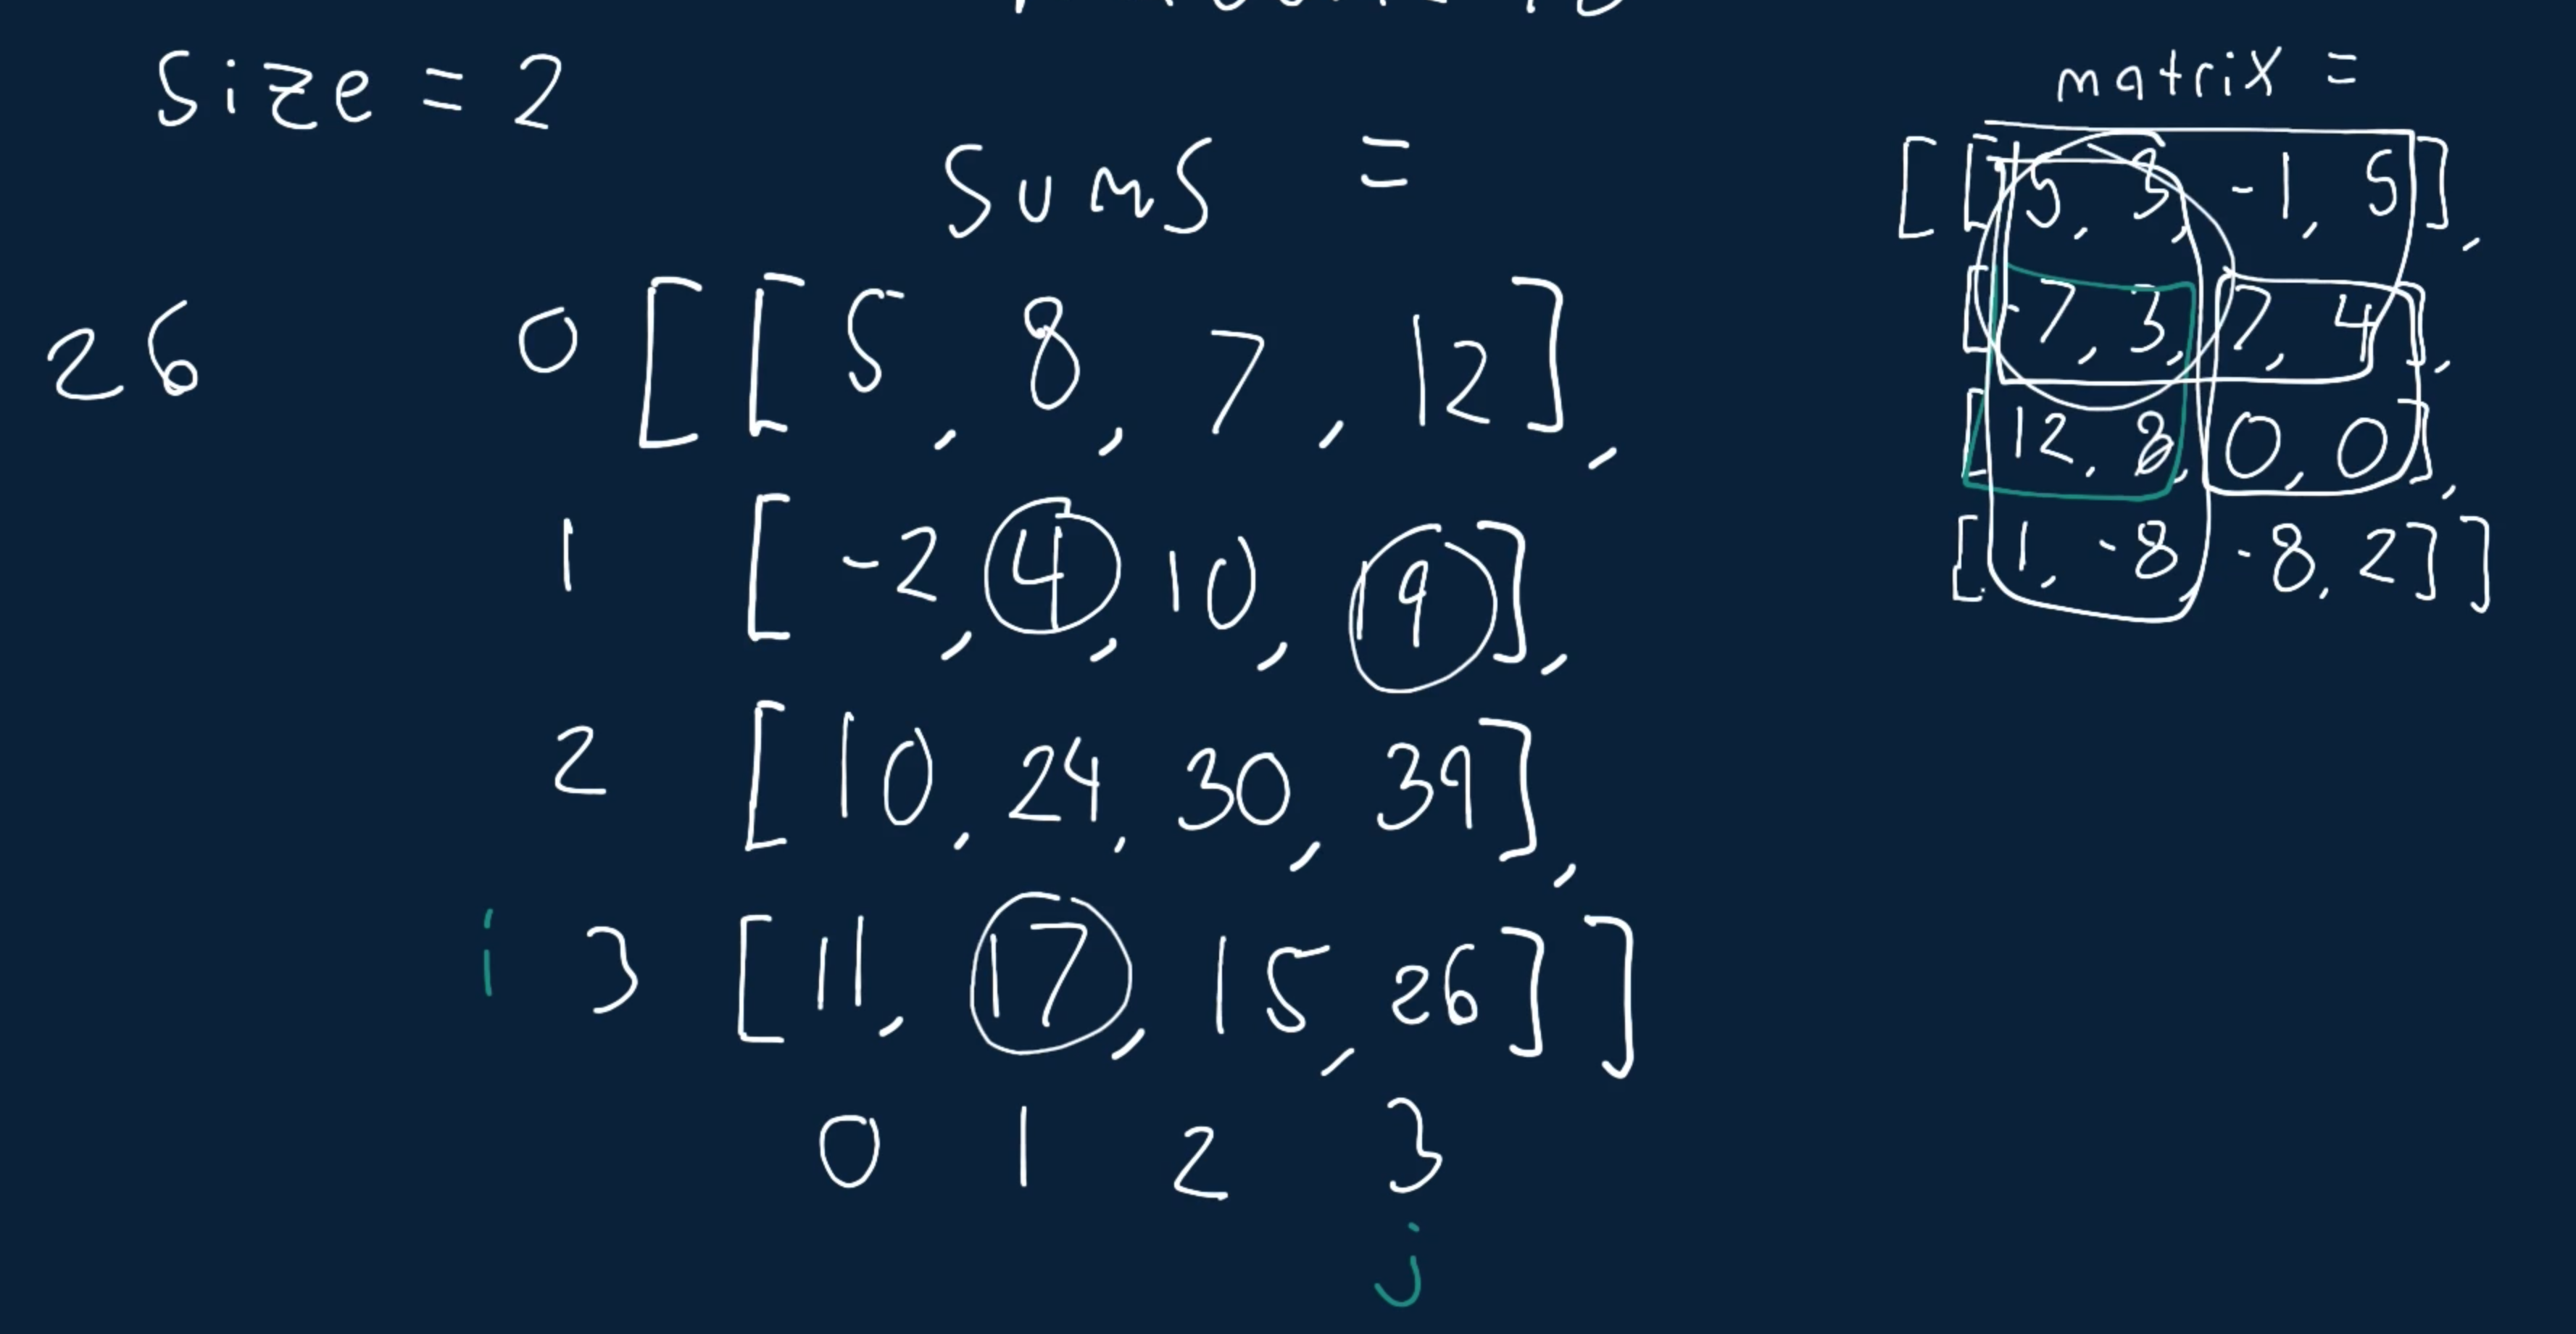 size = 2
sums =
26
0 [[5, 8, 7, 12],
1 [-2, 4, 10, 19],
2 [10, 24, 30, 39],
i 3 [11, 17, 15, 26]]
0 1 2 3
j
matrix =
[[5, 3, -1, 5],
[-7, 3, 7, 4],
[12, 8, 0, 0],
[1, -8, -8, 2]]